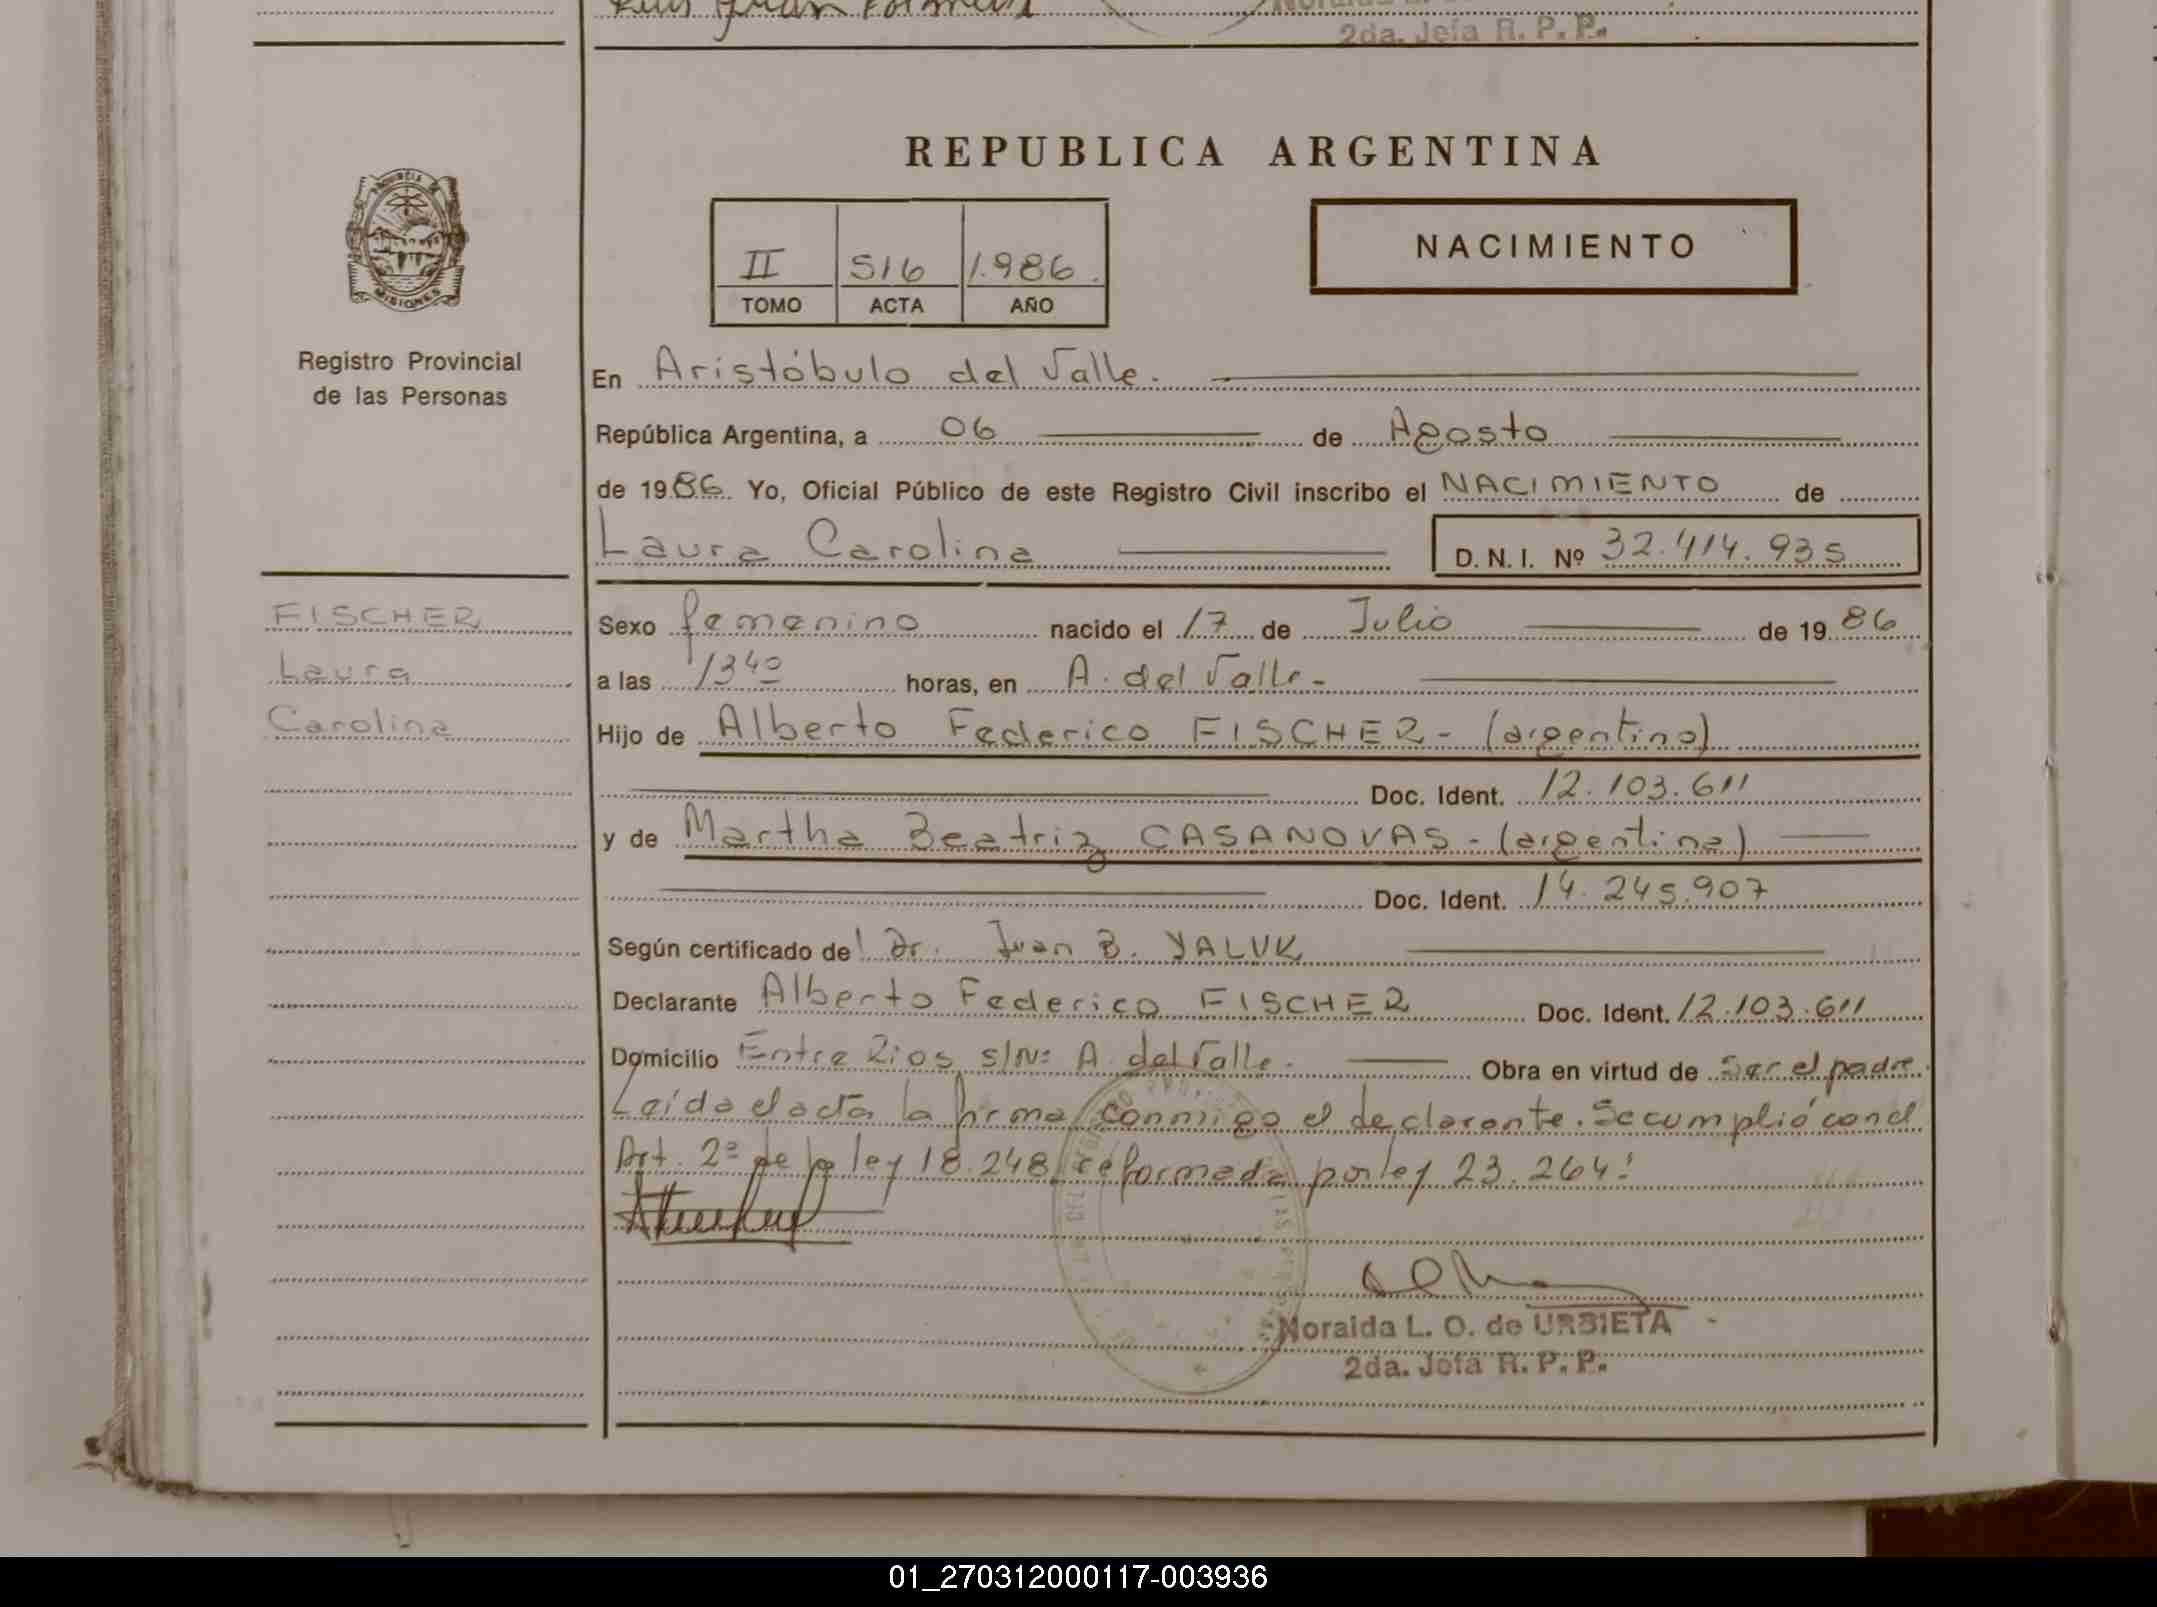 2da. Jefa R. P. P.
REPUBLICA ARGENTINA
PROVINCIA DE
MISIONES
Registro Provincial
de las Personas
II 516 1.986.
TOMO ACTA AÑO
NACIMIENTO
En Aristóbulo del Valle.
República Argentina, a 06 de Agosto
de 1986. Yo, Oficial Público de este Registro Civil inscribo el NACIMIENTO de
Laura Carolina D. N. I. Nº 32.414.935
FISCHER
Laura
Carolina
Sexo femenino nacido el 17 de Julio de 1986
a las 13 40 horas, en A. del Valle.-
Hijo de Alberto Federico FISCHER - (argentino)
Doc. Ident. 12.103.611
y de Martha Beatriz CASANOVAS - (argentina)
Doc. Ident. 14.245.907
Según certificado de Dr. Juan B. YALUK
Declarante Alberto Federico FISCHER Doc. Ident. 12.103.611
Domicilio Entre Rios s/Nº A. del Valle. Obra en virtud de Ser el padre.
Leída el acta, la firma conmigo el declarante. Se cumplió con el
Art. 2º de la ley 18.248, reformada por ley 23.264.
Noralda L. O. de URBIETA
2da. Jefa R. P. P.
01_270312000117-003936